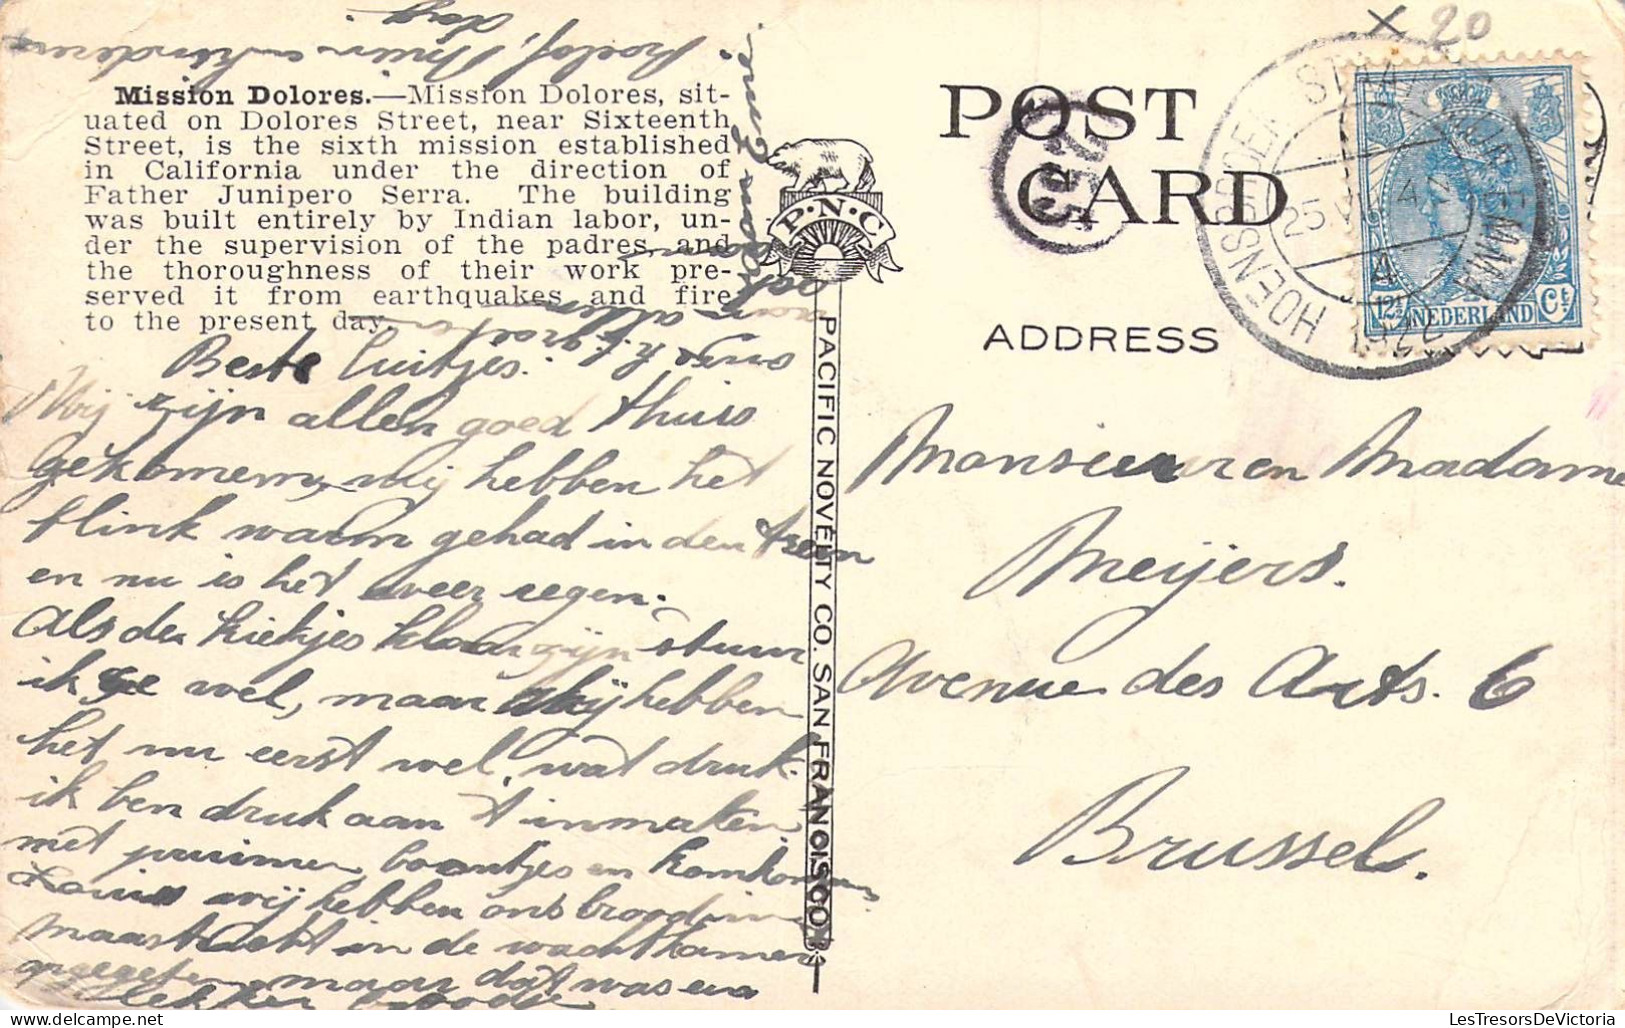 Mission Dolores.—Mission Dolores, sit-
uated on Dolores Street, near Sixteenth
Street, is the sixth mission established
in California under the direction of
Father Junipero Serra. The building
was built entirely by Indian labor, un-
der the supervision of the padres and
the thoroughness of their work pre-
served it from earthquakes and fire
to the present day.
Beste luitjes.
Wij zijn allen goed thuis
gekomem, wij hebben het
flink warm gehad in den treen
en nu is het weer regen.
Als de kiekjes klaar zijn stuur
ik ze wel, maar wij hebben
het nu eerst wel wat druk.
ik ben druk aan 't inmaken
met pruimen boontjes en komkommers
wij hebben ons brood in
Maastricht in de wachtkamer
opgegeten maar dat was een
lekker
P.N.C
PACIFIC NOVELTY CO. SAN FRANCISCO
POST
CARD
ADDRESS
x 20
HOENSBROEK STAATSMIJN EMMA
25
4
NEDERLAND
12½ Ct
Monsieur en Madame
Meijers.
Avenue des Arts. 6
Brussel.
LesTresorsDeVictoria